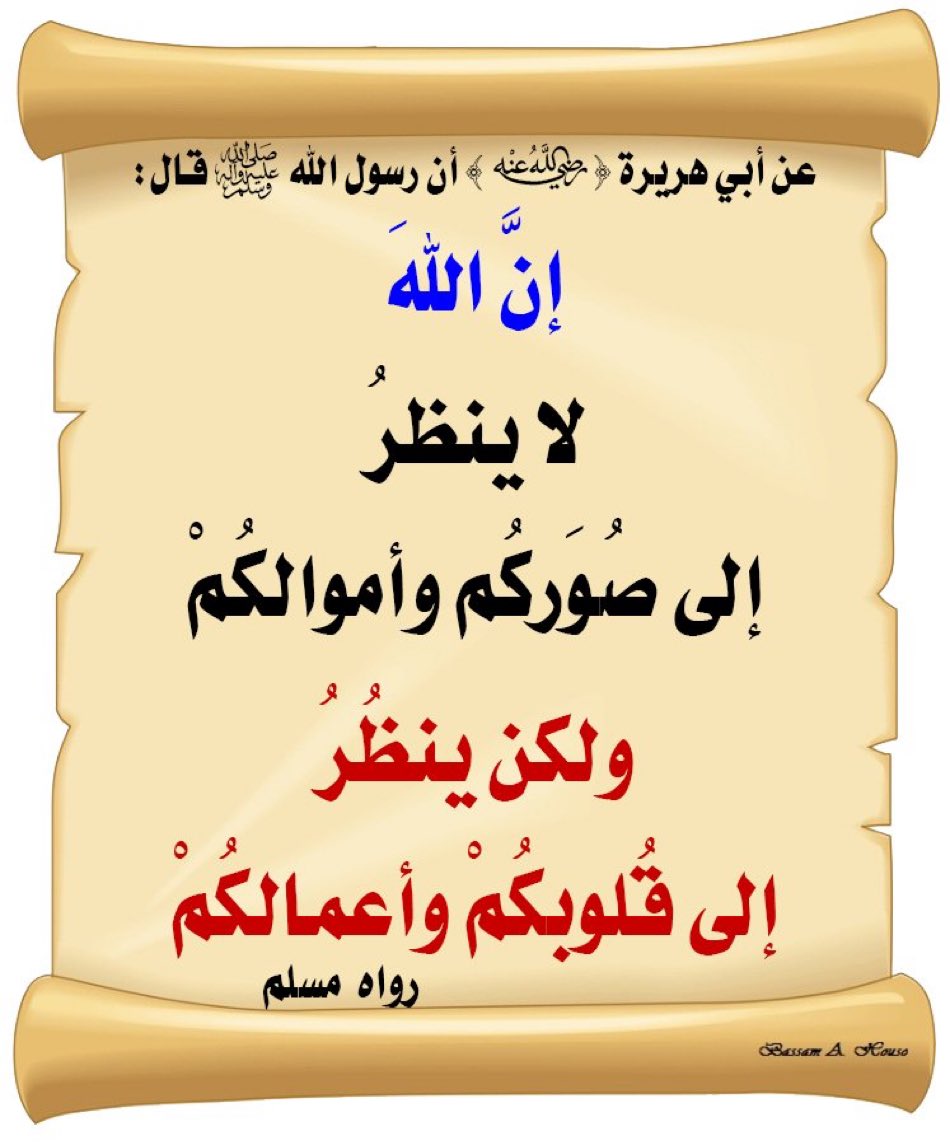 عن أبي هريرة ﴿ رضي الله عنه ﴾ أن رسول الله ﷺ قال :
إنَّ اللهَ
لا ينظرُ
إلى صُوَركُم وأموالكُمْ
ولكن ينظُرُ
إلى قُلوبكُمْ وأعمالكُمْ
رواه مسلم
Bassam A. Houso